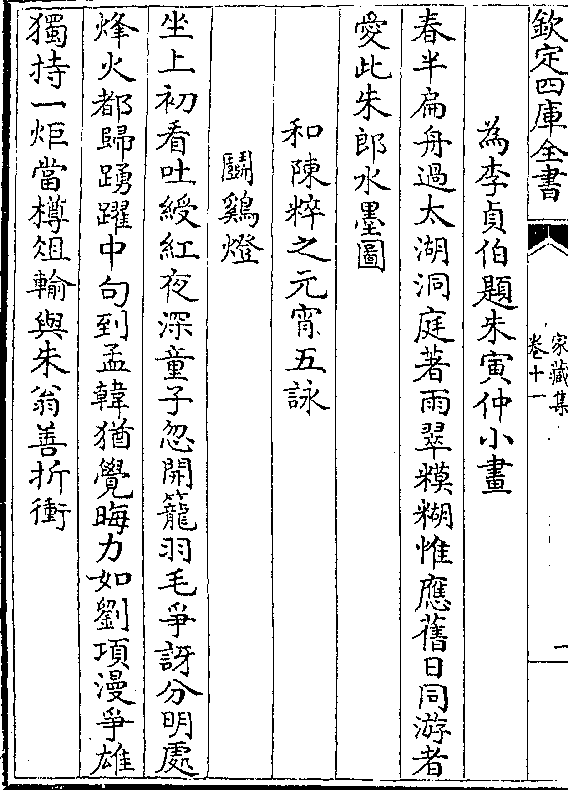 欽定四庫全書
家藏集
卷十一
一
為李貞伯題朱寅仲小畫
春半扁舟過太湖洞庭著雨翠糢糊惟應舊日同游者
愛此朱郎水墨圖
和陳粹之元宵五詠
鬬鷄燈
坐上初看吐綬紅夜深童子忽開籠羽毛爭訝分明處
烽火都歸踴躍中句到孟韓猶覺晦力如劉項漫爭雄
獨持一炬當樽俎輸與朱翁善折衝